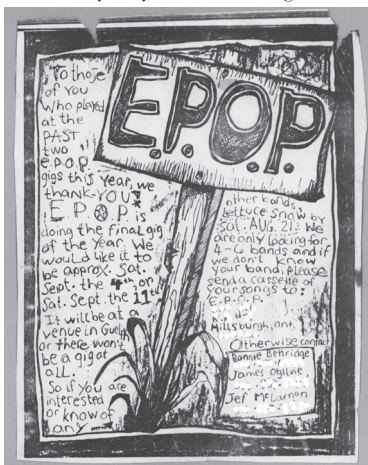 E.P.O.P.
To those
of You
Who played
at the
PAST
two
e.p.o.p.
gigs this Year, we
thank-YOU!
E.P.O.P. is
doing the final gig
of the Year. We
would like it to
be approx. Sat.
Sept. the 4th or
Sat. Sept. the 11th
It will be at a
venue in Guelph
or there won't
be a gig at
all.
So if you are
interested
or know of
any
other bands,
lettuce snow by
Sat. AUG. 21st. We
are only looking for
4-6 bands and if
we don't know
your band, please
send a cassette of
our songs to:
E.P.O.P.
Hillsburgh, ont.
Otherwise contact
Bonnie Bettridge
James Ogilvie,
Jef McLarnon